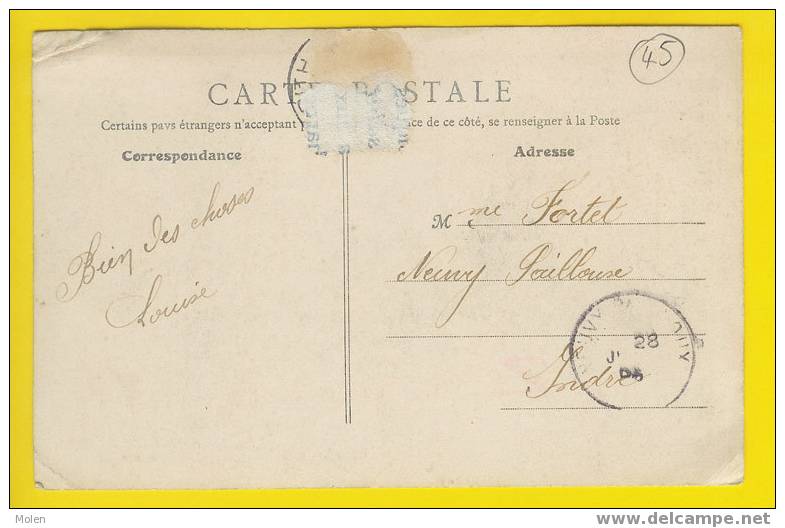 45
CARTE POSTALE
Certains pays étrangers n'acceptant ce de ce côté, se renseigner à la Poste
Correspondance
Adresse
Bien des choses
Louise
Mme Fortet
Neuvy Pailloux
Indre
28
Molen
www.delcampe.net